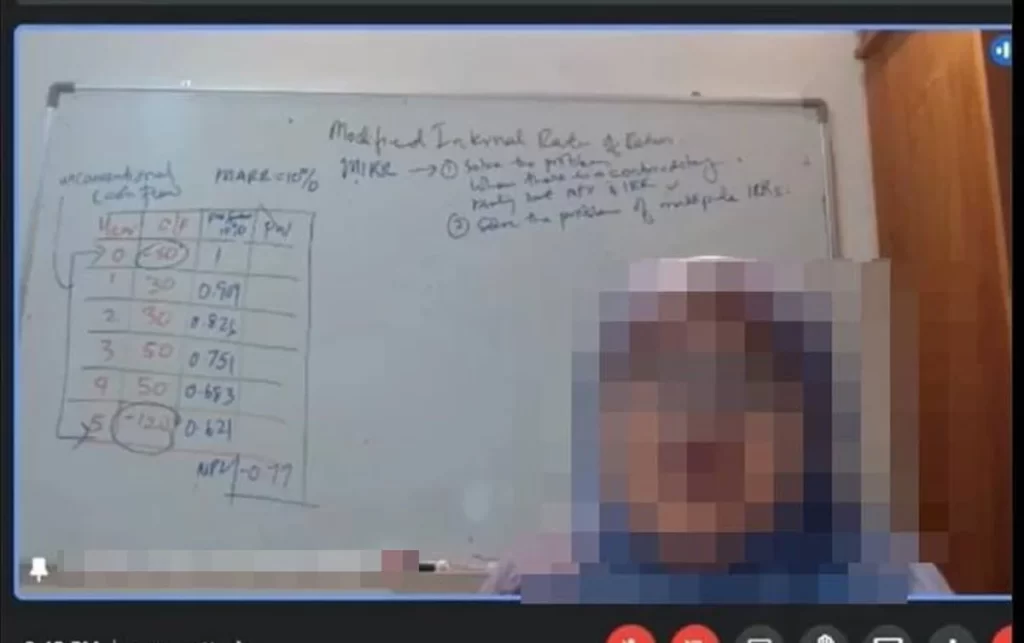 Modified Internal Rate of Return
MIRR → ① Solve the problem
When there is a contradictory
between NPV & IRR
② Solve the problem of multiple IRRs.
unconventional
Cash flow
MARR=10%
Year C/F 10% PW
0 -50 1
1 30 0.909
2 30 0.826
3 50 0.751
4 50 0.683
5 -120 0.621
NPV -0.77